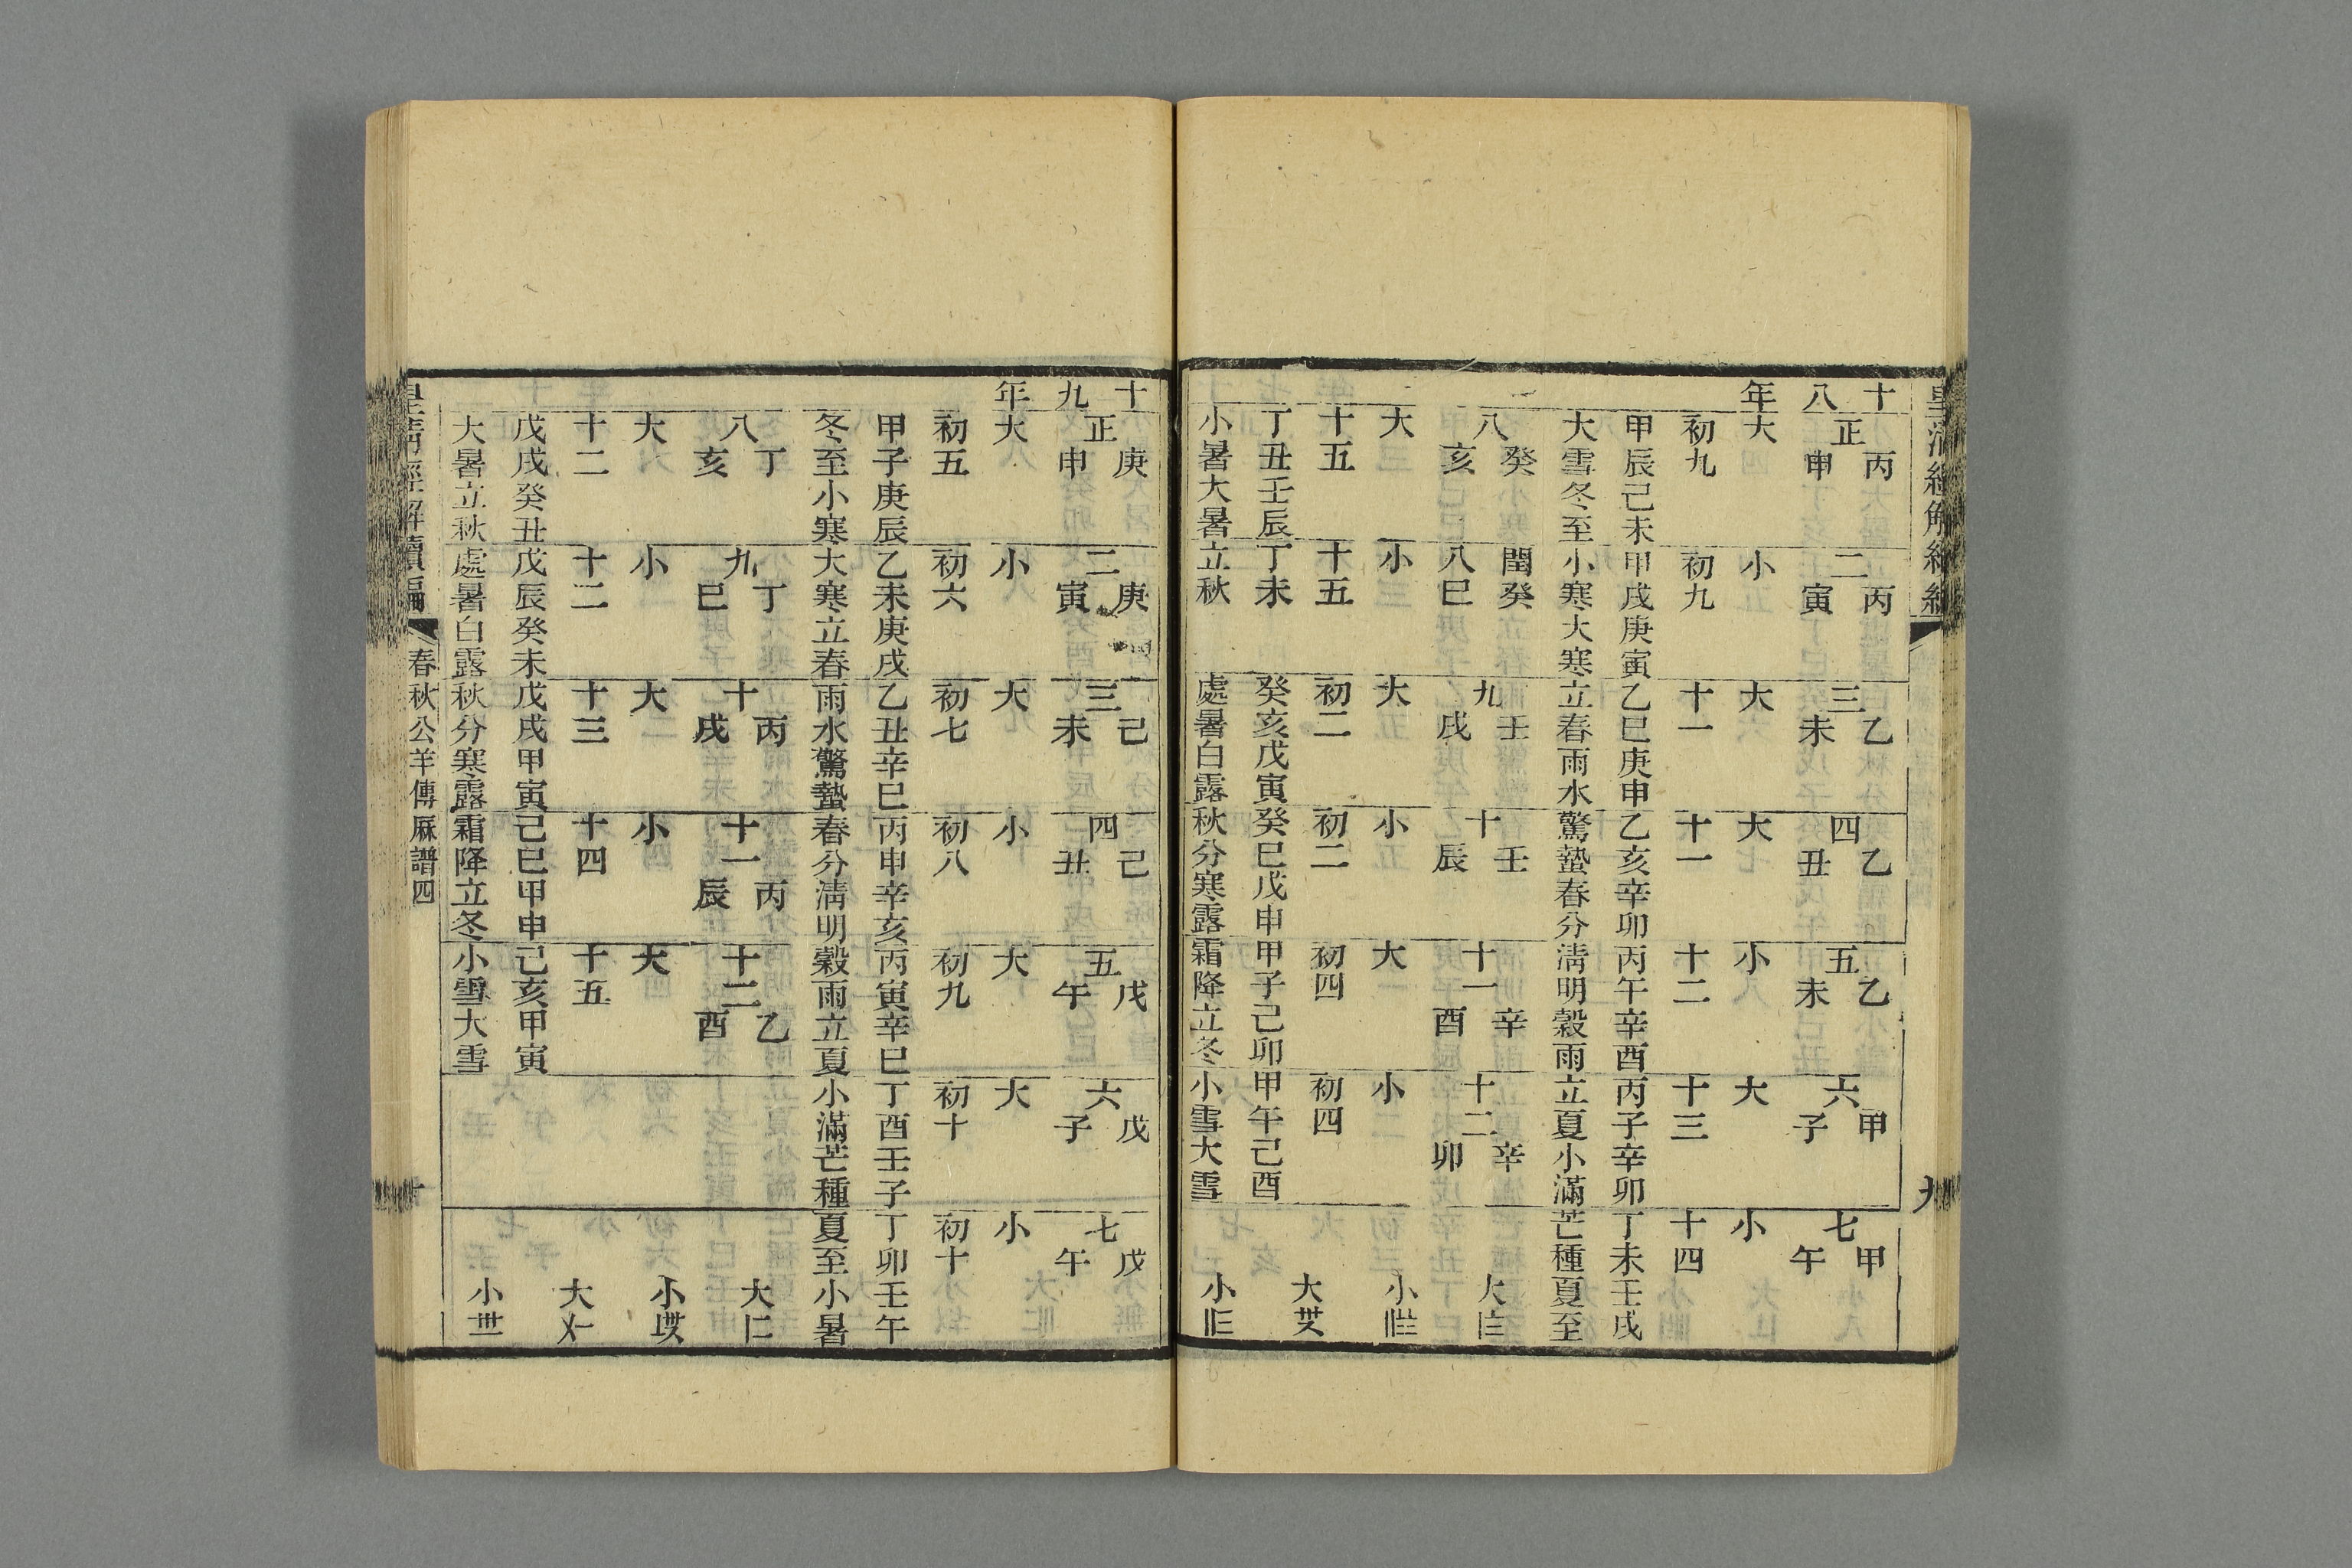 皇清經解續編
九
十八年
正丙申 二丙寅 三乙未 四乙丑 五乙未 六甲子 七甲午
大 小 大 大 小 大 小
初九 初九 十一 十一 十二 十三 十四
甲辰己未 甲戌庚寅 乙巳庚申 乙亥辛卯 丙午辛酉 丙子辛卯 丁未壬戌
大雪冬至 小寒大寒 立春雨水 驚蟄春分 清明穀雨 立夏小滿 芒種夏至
八癸亥 閏八癸巳 九壬戌 十壬辰 十一辛酉 十二辛卯
大 小 大 小 大 小
十五 十五 初二 初二 初四 初四
丁丑壬辰 丁未 癸亥戊寅 癸巳戊申 甲子己卯 甲午己酉
小暑大暑 立秋 處暑白露 秋分寒露 霜降立冬 小雪大雪
大 小 大 小
十九年
正庚申 二庚寅 三己未 四己丑 五戊午 六戊子 七戊午
大 小 大 小 大 大 小
初五 初六 初七 初八 初九 初十 初十
甲子庚辰 乙未庚戌 乙丑辛巳 丙申辛亥 丙寅辛巳 丁酉壬子 丁卯壬午
冬至小寒 大寒立春 雨水驚蟄 春分清明 穀雨立夏 小滿芒種 夏至小暑
八丁亥 九丁巳 十丙戌 十一丙辰 十二乙酉
大 小 大 小 大
十二 十二 十三 十四 十五
戊戌癸丑 戊辰癸未 戊戌甲寅 己巳甲申 己亥甲寅
大暑立秋 處暑白露 秋分寒露 霜降立冬 小雪大雪
大 小 大 小
皇清經解續編
春秋公羊傳厤譜四
十